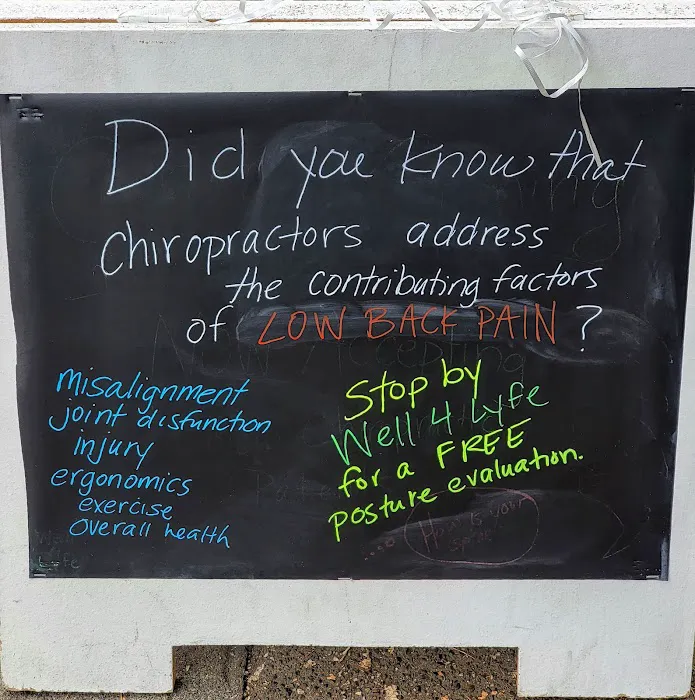 Did you know that
chiropractors address
the contributing factors
of LOW BACK PAIN ?
misalignment
joint disfunction
injury
ergonomics
exercise
Overall health
Stop by
Well 4 Lyfe
for a FREE
posture evaluation.
How is your
spine